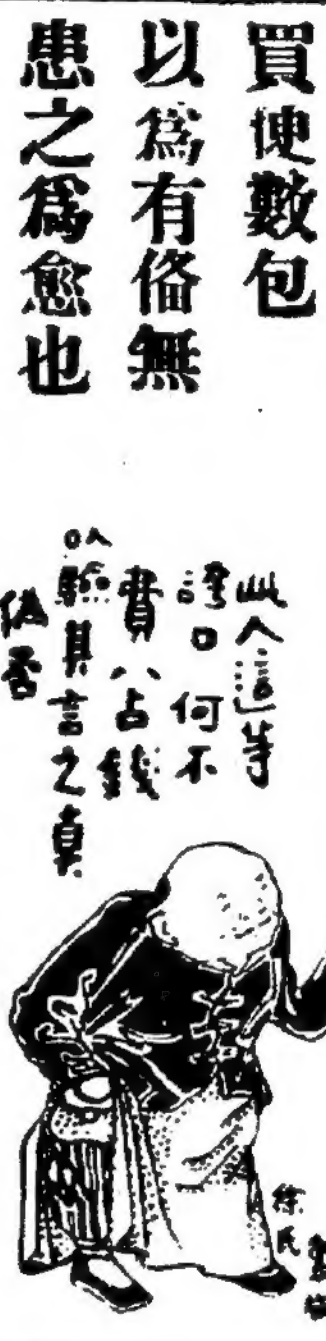 買便數包
以為有俻無
患之為愈也
此人這等
誇口何不
費八占錢
以驗其言之真
偽否
徐氏